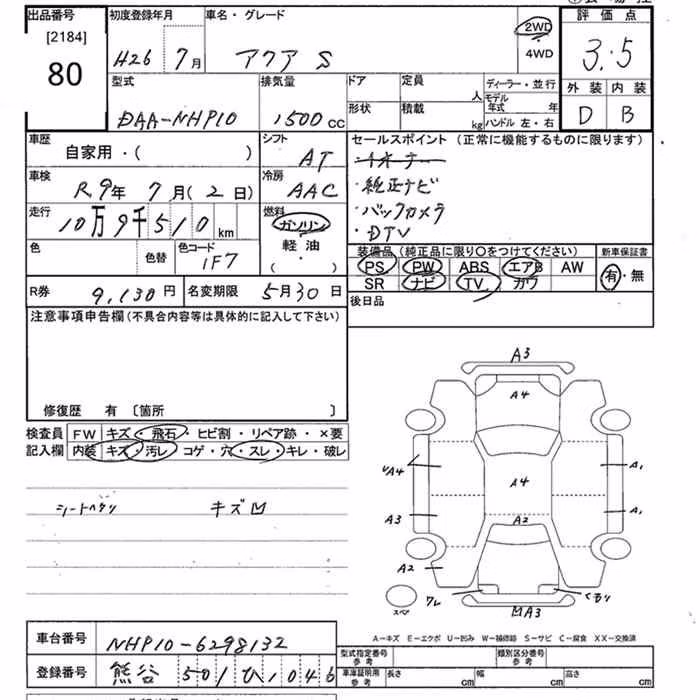 出品番号 初度登録年月 車名・グレード 評価点
[2184]
80
H26年 7月 アクア S 2WD・4WD 3.5
型式 排気量 ドア 定員 人 ディーラー・並行 外装 内装
DAA-NHP10 1500cc 形状 積載 kg モデル年式 年 ハンドル 左・右 D B
車歴 シフト セールスポイント (正常に機能するものに限ります)
自家用・( ) AT
車検 冷房 ・純正ナビ
R9年 7月(2日) AAC ・バックカメラ
走行 燃料 ・DTV
10万9千510km ガソリン
色 色替 色コード 軽油 装備品 (純正品に限り〇をつけてください) 新車保証書
1F7 ( ・ ) PS PW ABS エアB AW 有・無
SR ナビ TV カワ
R券 9,130円 名変期限 5月30日 後日品
注意事項申告欄 (不具合内容等は具体的に記入して下さい)
修復歴 有 〔箇所 〕
検査員 FW キズ・飛石・ヒビ割・リペア跡・×要
記入欄 内装 キズ・汚レ・コゲ・穴・スレ・キレ・破レ
シートヘタリ キズ
A3
A4
A4 A1
A4
A3 A1
A2
A2
ワレ くもり
スペア A3
A-キズ E-エクボ U-凹み W-補修跡 S-サビ C-腐食 XX-交換済
車台番号 NHP10-6298132
型式指定番号 参考 類別区分番号 参考
登録番号 熊谷 501 ひ 1046
車庫証明用 参考 長さ cm 幅 cm 高さ cm